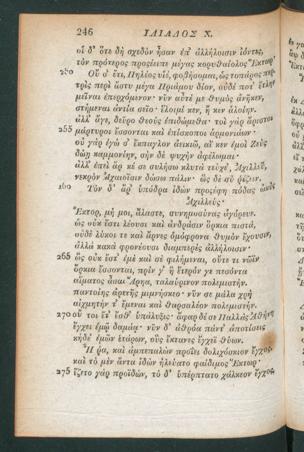 246 ΙΛΙΑΔΟΣ Χ.
οἱ δ' ὅτε δὴ σχεδὸν ἦσαν ἐπ' ἀλλήλοισιν ἰόντες,
τὸν πρότερος προσέειπε μέγας κορυθαίολος Ἕκτωρ·
250 Οὔ σ' ἔτι, Πηλέος υἱὲ, φοβήσομαι, ὡς τοπάρος περ
τρὶς περὶ ἄστυ μέγα Πριάμου δίον, οὐδέ ποτ' ἔτλην
μεῖναι ἐπερχόμενον· νῦν αὖτέ με θυμὸς ἀνῆκεν,
στήμεναι ἀντία σεῖο· ἕλοιμί κεν, ἤ κεν ἁλοίην.
ἀλλ' ἄγε, δεῦρο θεοὺς ἐπιδώμεθα· τοὶ γὰρ ἄριστοι
255 μάρτυροι ἔσσονται καὶ ἐπίσκοποι ἁρμονιάων·
οὐ γὰρ ἐγώ σ' ἔκπαγλον ἀεικιῶ, αἴ κεν ἐμοὶ Ζεὺς
δώῃ καμμονίην, σὴν δὲ ψυχὴν ἀφέλωμαι·
ἀλλ' ἐπεὶ ἄρ κέ σε συλήσω κλυτὰ τεύχε', Ἀχιλλεῦ,
νεκρὸν Ἀχαιοῖσιν δώσω πάλιν· ὣς δὲ σὺ ῥέζειν.
260 Τὸν δ' ἄρ' ὑπόδρα ἰδὼν προσέφη πόδας ὠκὺς
Ἀχιλλεύς·
Ἕκτορ, μή μοι, ἄλαστε, συνημοσύνας ἀγόρευε.
ὡς οὐκ ἔστι λέουσι καὶ ἀνδράσιν ὅρκια πιστά,
οὐδὲ λύκοι τε καὶ ἄρνες ὁμόφρονα θυμὸν ἔχουσιν,
ἀλλὰ κακὰ φρονέουσι διαμπερὲς ἀλλήλοισιν·
265 ὣς οὐκ ἔστ' ἐμὲ καὶ σὲ φιλήμεναι, οὔτε τι νῶϊν
ὅρκια ἔσσονται, πρίν γ' ἢ ἕτερόν γε πεσόντα
αἵματος ἆσαι Ἄρηα, ταλαύρινον πολεμιστήν.
παντοίης ἀρετῆς μιμνήσκεο· νῦν σε μάλα χρὴ
αἰχμητήν τ' ἔμεναι καὶ θαρσαλέον πολεμιστήν.
270 οὔ τοι ἔτ' ἔσθ' ὑπάλυξις· ἄφαρ δέ σε Παλλὰς Ἀθήνη
ἔγχει ἐμῷ δαμάᾳ· νῦν δ' ἀθρόα πάντ' ἀποτίσεις
κήδε' ἐμῶν ἑτάρων, οὓς ἔκτανες ἔγχεϊ θύων.
Ἦ ῥα, καὶ ἀμπεπαλὼν προΐει δολιχόσκιον ἔγχος·
καὶ τὸ μὲν ἄντα ἰδὼν ἠλεύατο φαίδιμος Ἕκτωρ·
275 ἕζετο γὰρ προϊδών, τὸ δ' ὑπέρπτατο χάλκεον ἔγχος